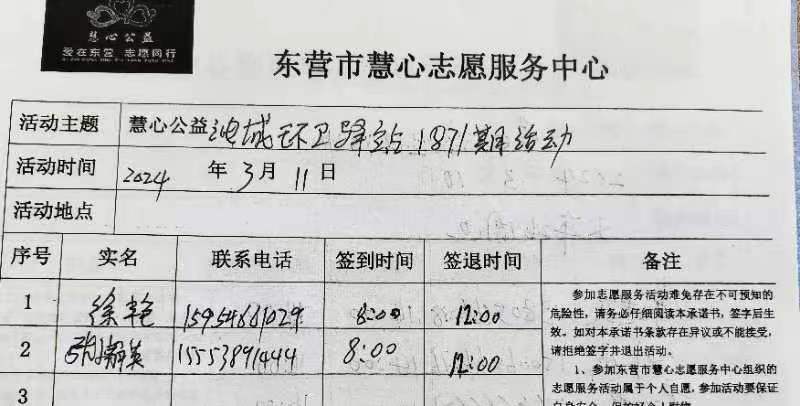 慧心公益
爱在东营 志愿同行
东营市慧心志愿服务中心
活动主题 慧心公益油城环卫驿站1871期活动
活动时间 2024 年 3 月 11 日
活动地点
序号 实名 联系电话 签到时间 签退时间 备注
1 徐艳 15954661029 8:00 12:00
2 15553891444 8:00 12:00
3
参加志愿服务活动难免存在不可预知的
危险性，请务必仔细阅读本承诺书，签字后生
效。如对本承诺书条款存在异议或不能接受，
请拒绝签字并退出活动。
1、参加东营市慧心志愿服务中心组织的
志愿服务活动属于个人自愿，参加活动要保证